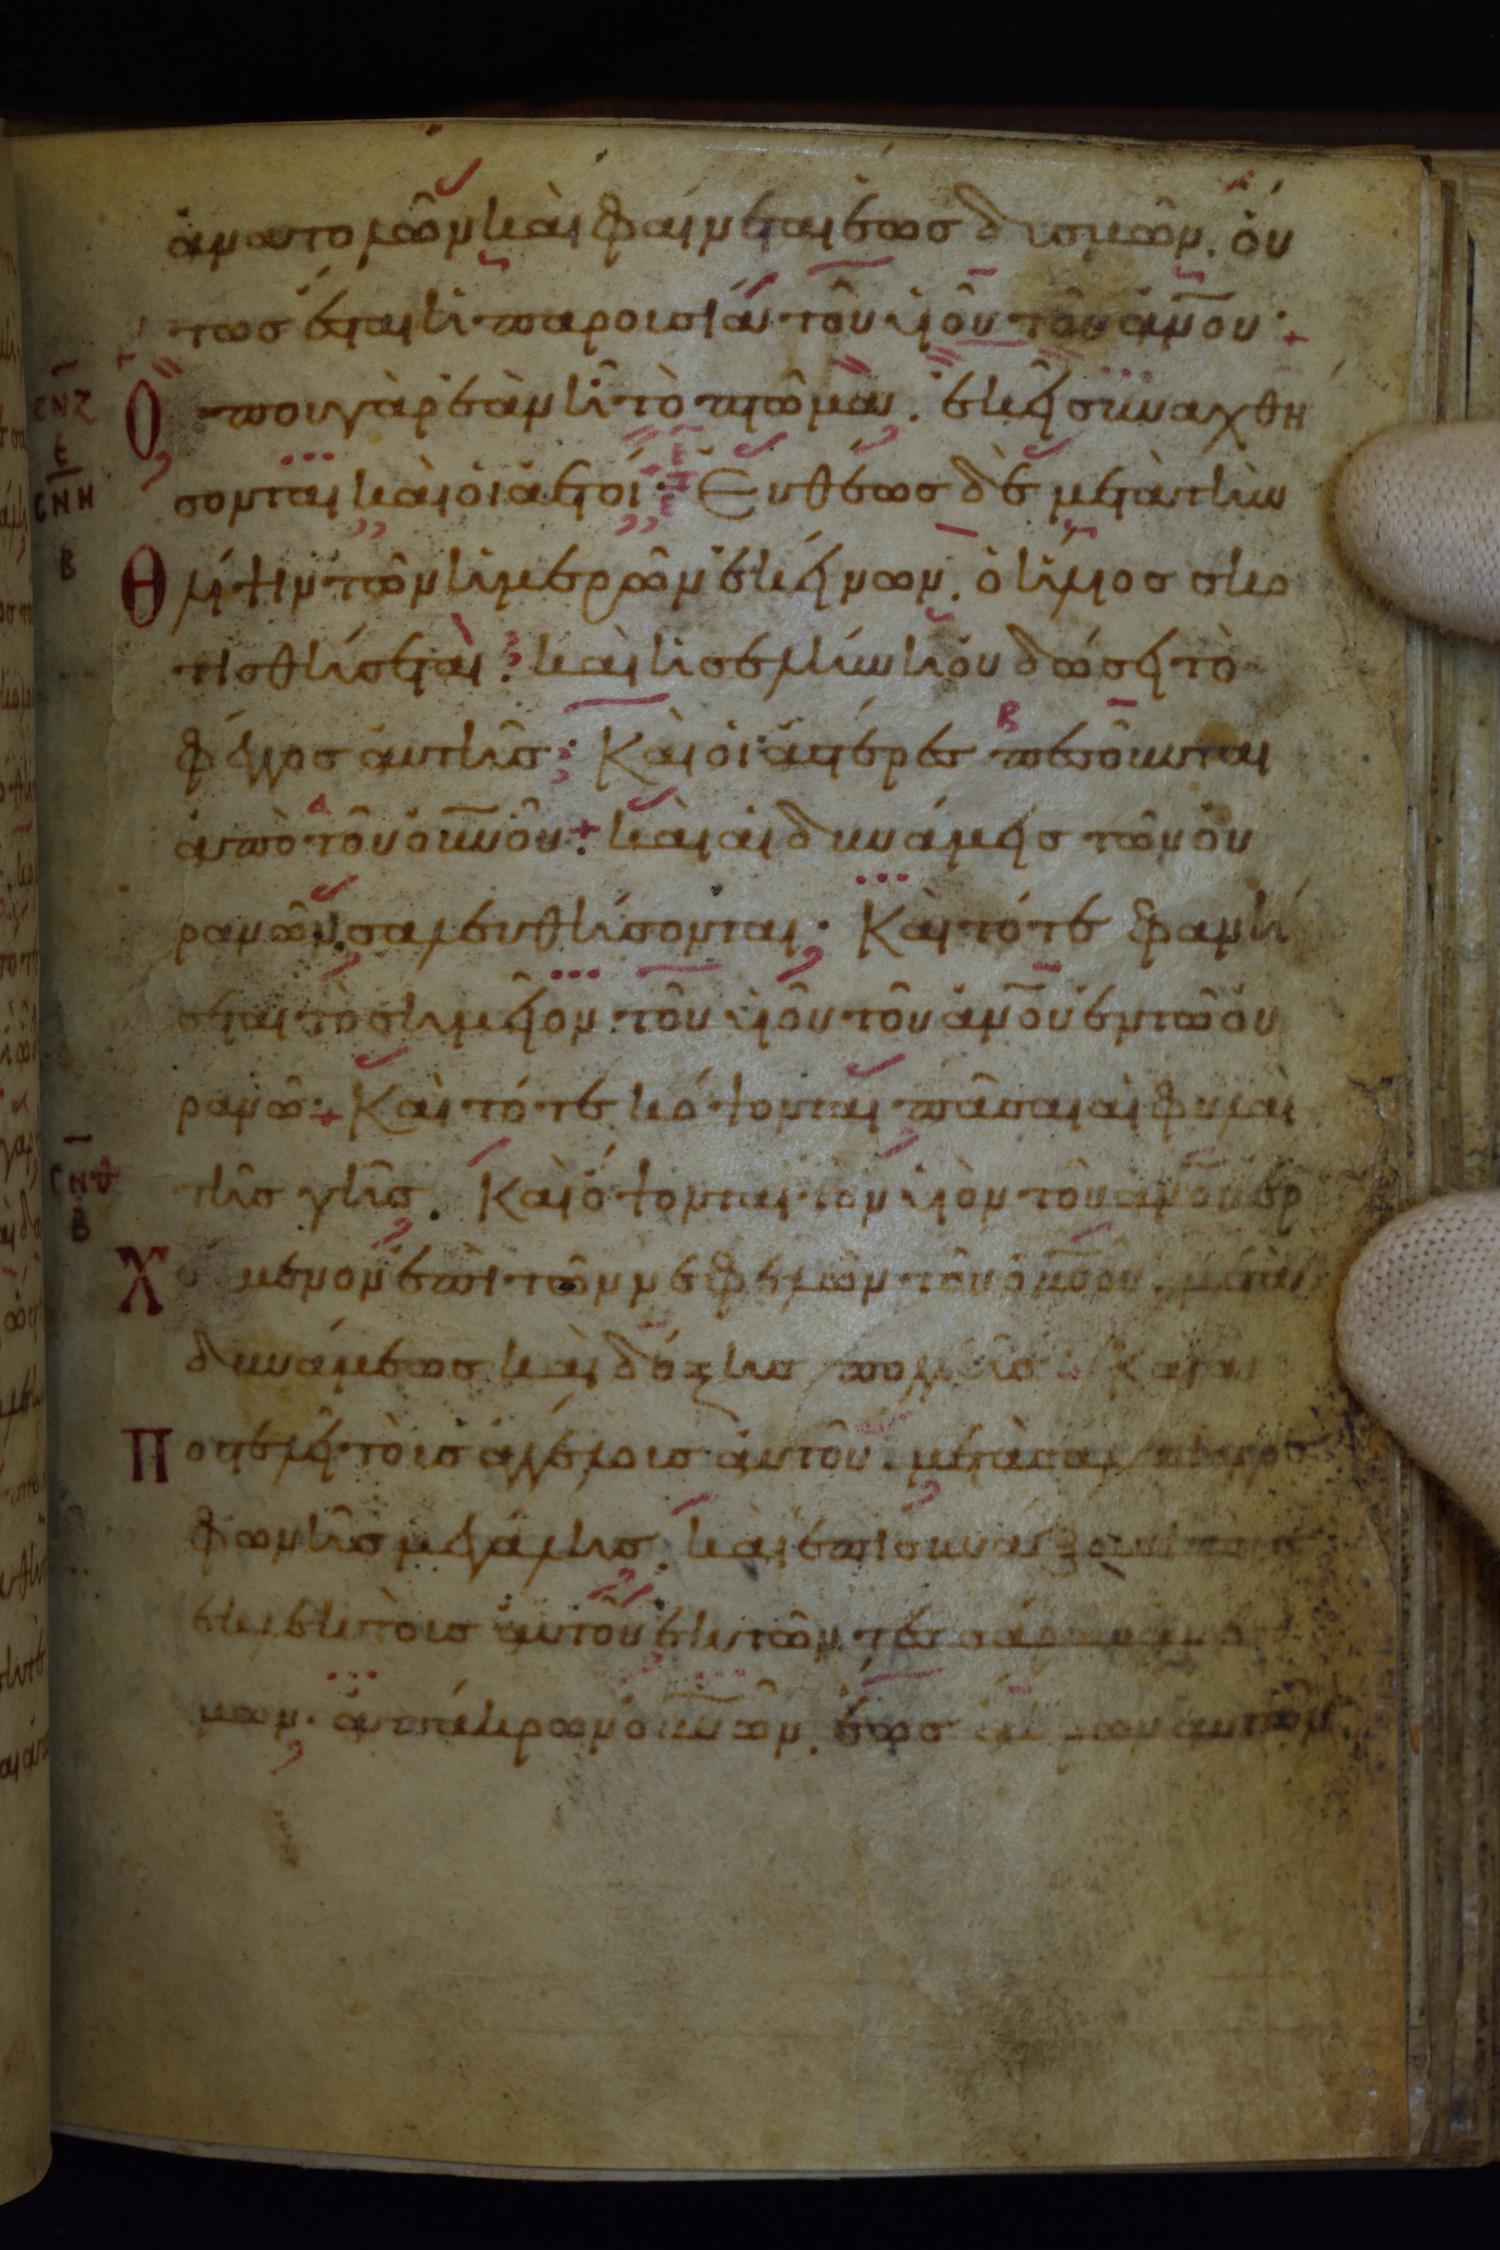 ἀνατολῶν καὶ φαίνεται ἕως δυσμῶν. οὕ
τως ἔσται ἡ παρουσία τοῦ υἱοῦ τοῦ ἀν̅ου·
CΝΖ
Ε
Ὅπου γὰρ ἐὰν ἦ τὸ πτῶμα. ἐκεῖ συναχθή
CΝΗ
Β
σονται καὶ οἱ ἀετοί· Εὐθέως δὲ μετὰ τὴν
θλίψιν τῶν ἡμερῶν ἐκείνων. ὁ ἥλιος σκο
τισθήσεται· καὶ ἡ σελήνη οὐ δώσει τὸ
φέγγος αὐτῆς· Καὶ οἱ ἀστέρες πεσοῦνται
ἀπὸ τοῦ οὐν̅οῦ· καὶ αἱ δυνάμεις τῶν οὐ
ρανῶν σαλευθήσονται· Καὶ τότε φανή
σεται τὸ σημεῖον τοῦ υἱοῦ τοῦ ἀν̅ου ἐν τῶ οὐ
ρανῶ· Καὶ τότε κόψονται πᾶσαι αἱ φυλαὶ
CΝΘ
Β
τῆς γῆς. Καὶ ὄψονται τὸν υἱὸν τοῦ ἀν̅ου ἐρ
χόμενον ἐπὶ τῶν νεφελῶν τοῦ οὐν̅οῦ. μετὰ
δυνάμεως καὶ δόξης πολλῆς· Καὶ ἀ
ποστελεῖ τοὺς ἀγγέλους αὐτοῦ. μετὰ σάλπιγγος
φωνῆς μεγάλης. καὶ ἐπισυνάξουσι τοὺς
ἐκλεκτοὺς αὐτοῦ ἐκ τῶν τεσσάρων ἀνέ
μων. ἀπ' ἄκρων οὐν̅ῶν. ἕως ἄκρων αὐτῶν